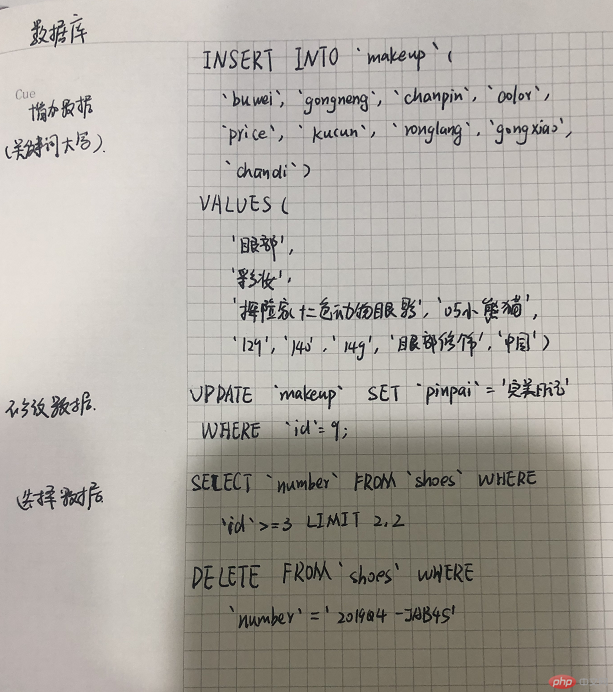 数据库
INSERT INTO `makeup` (
Cue
增加数据
(关键词大写).
`buwei`, `gongneng`, `chanpin`, `color`,
`price`, `kucun`, `rongliang`, `gongxiao`,
`chandi`)
VALUES (
'眼部',
'彩妆',
'探险家十二色动物眼影', '05小熊猫',
'129', '140', '14g', '眼部修饰', '中国')
修改数据.
UPDATE `makeup` SET `pinpai` = '完美日记'
WHERE `id` = 9;
选择数据
SELECT `number` FROM `shoes` WHERE
`id` >= 3 LIMIT 2,2
DELETE FROM `shoes` WHERE
`number` = '2019Q4-JAB45'
php